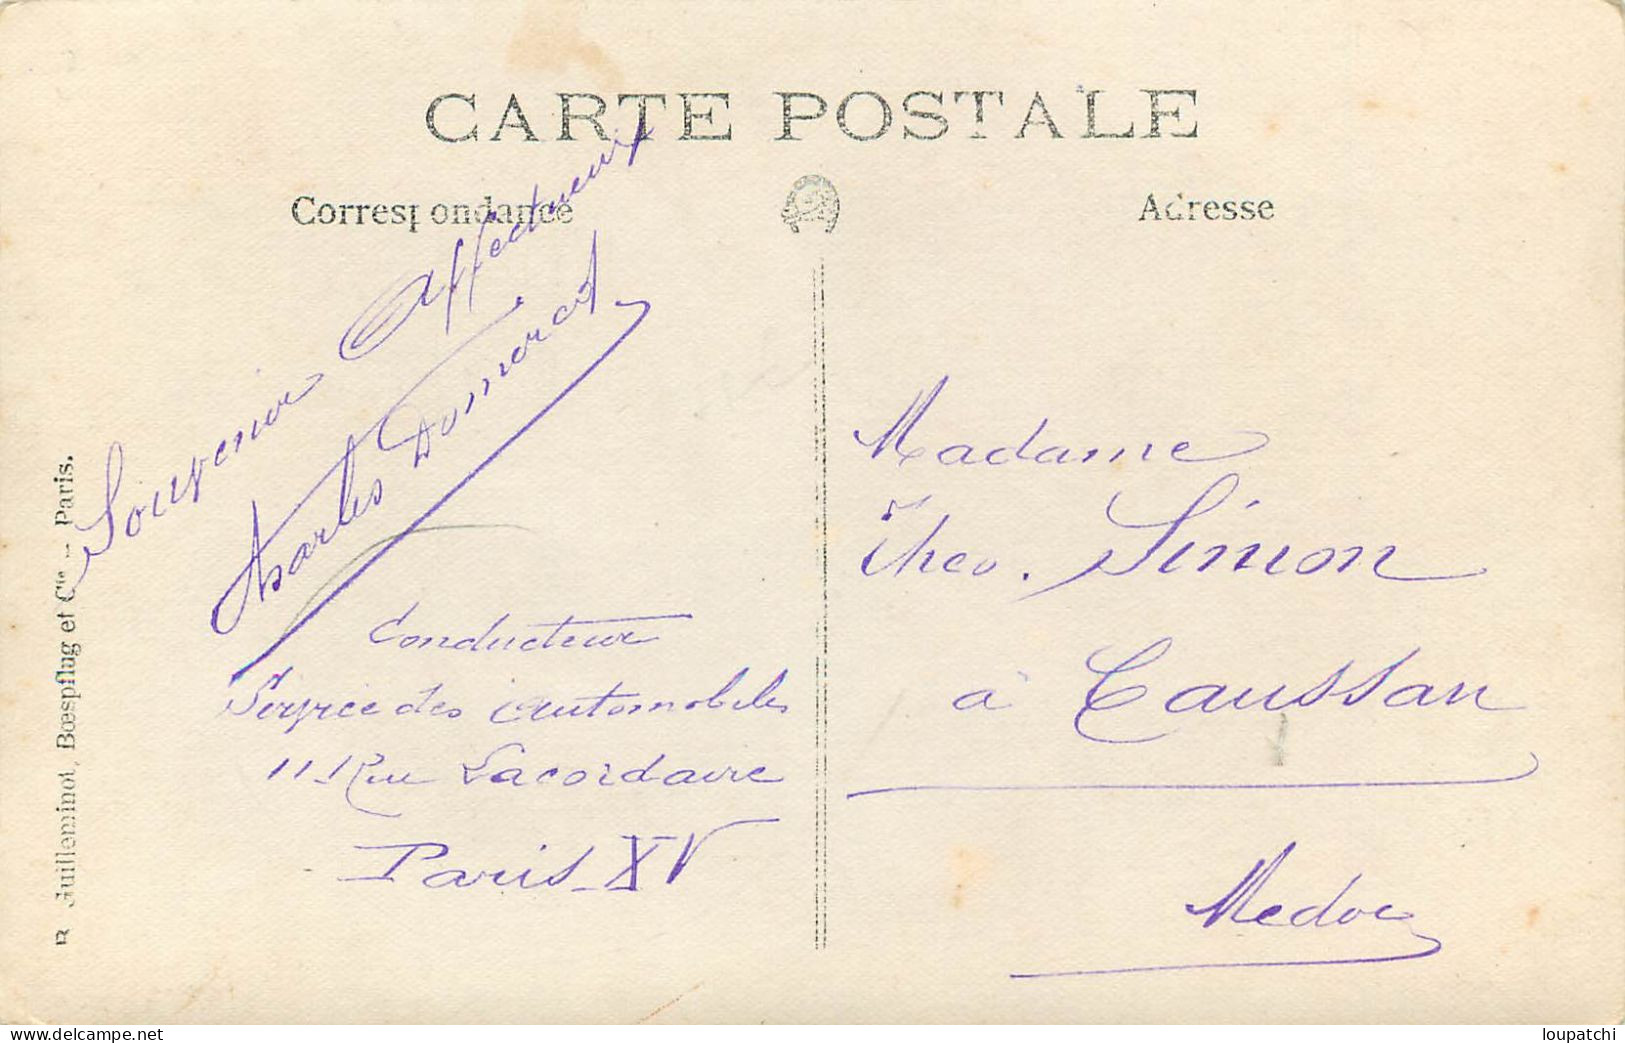 CARTE POSTALE
Correspondance
Adresse
Souvenir Affectueux
Charles Domercq
Conducteur
Service des Automobiles
11 Rue Lacordaire
Paris XV
Madame
Theo. Simon
à Caussan
Medoc
R. Guilleminot, Bœspflug et Cie – Paris.
delcampe.net
loupatchi